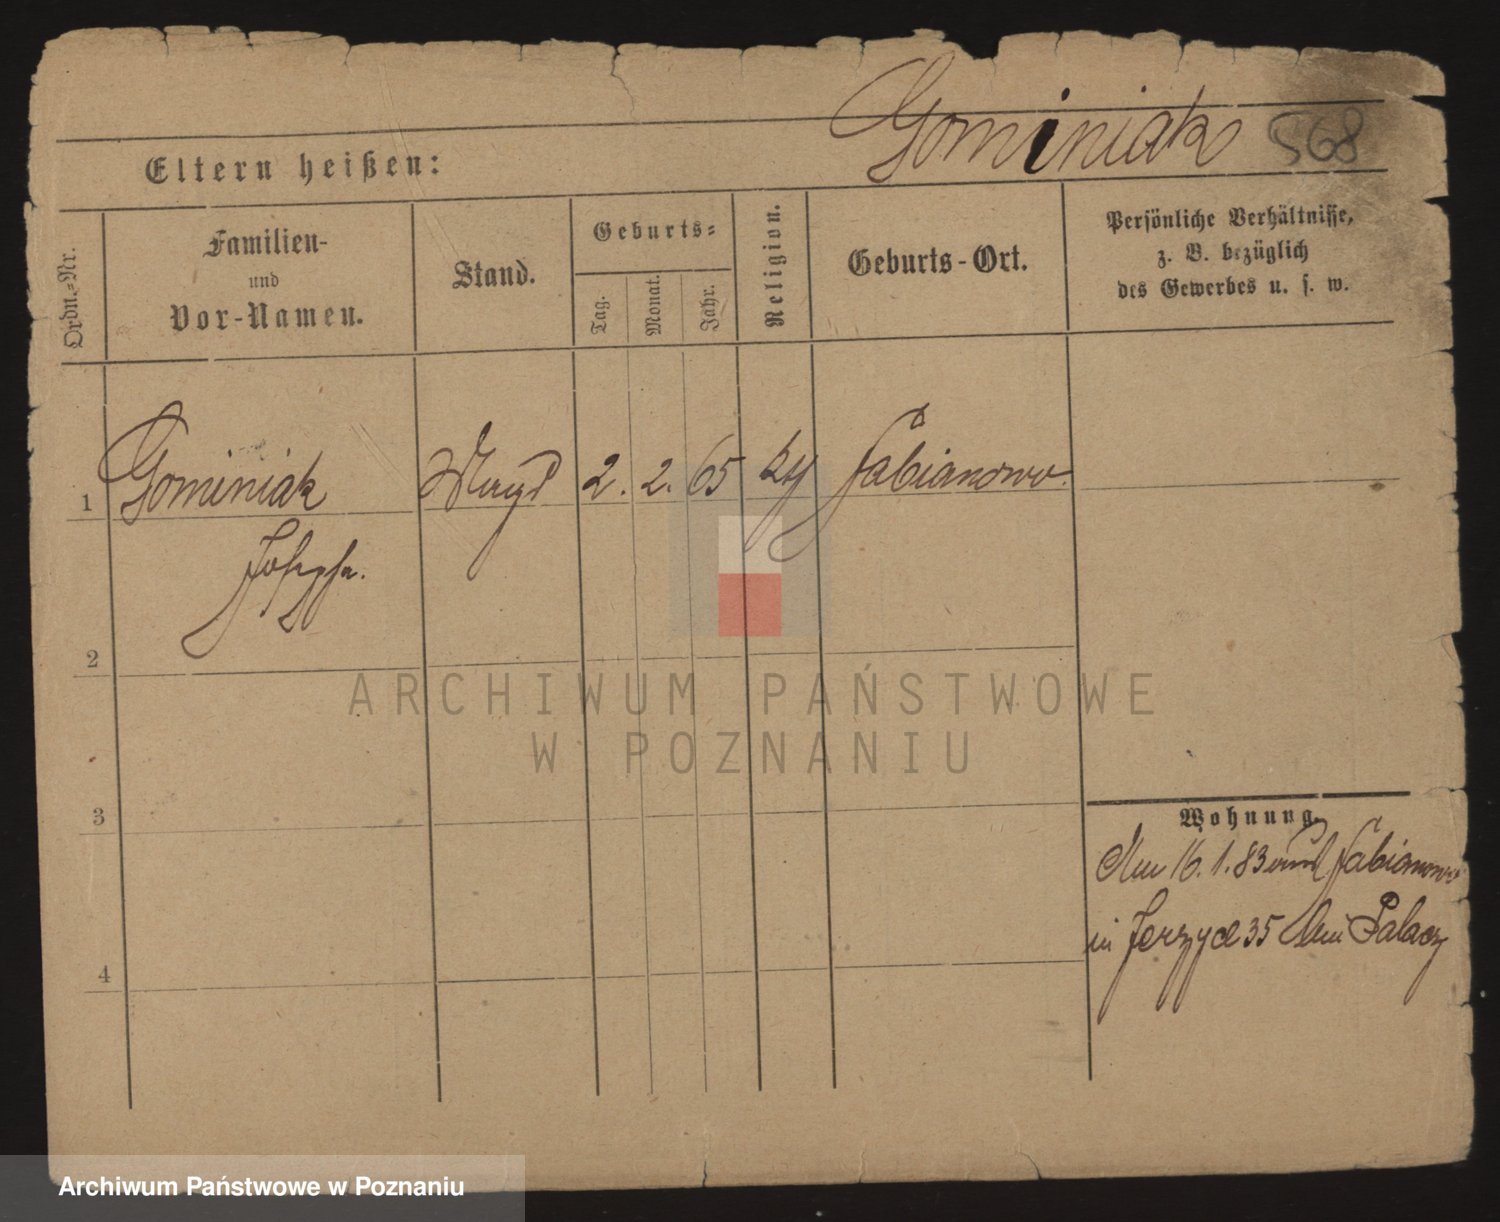 Gominiak 568
Eltern heißen:
Ordn.-Nr.
Familien-
und
Vor-Namen.
Stand.
Geburts-
Tag.
Monat.
Jahr.
Religion.
Geburts-Ort.
Persönliche Verhältnisse,
z. B. bezüglich
des Gewerbes u. s. w.
1 Gominiak Magd 2. 2. 65 kth Fabianowo.
Josepha.
2
3
4
Wohnung.
16. 1. 83 Fabianowo
in Jerzyce 35 bei Palacz
ARCHIWUM PAŃSTWOWE
W POZNANIU
Archiwum Państwowe w Poznaniu